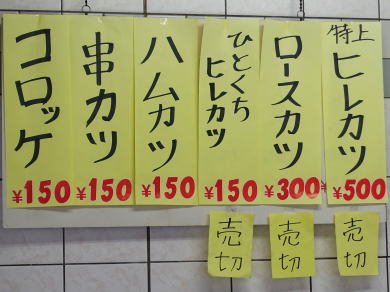 特上
ヒレカツ
¥500
ロースカツ
¥300
ひとくち
ヒレカツ
¥150
ハムカツ
¥150
串カツ
¥150
コロッケ
¥150
売切
売切
売切